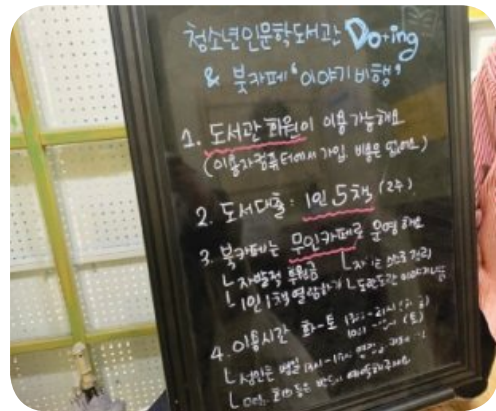 청소년인문학도서관 Do+ing
& 북카페 '이야기비행'
1. 도서관 회원이 이용가능해요
(이용자컴퓨터에서 가입. 비용은 없어요)
2. 도서대출 : 1인 5책 (2주)
3. 북카페는 무인카페로 운영해요
ㄴ 자발적 후원금 ㄴ 스스로 정리
ㄴ 1인 1책 열람하기 ㄴ 도란도란 이야기나눔
4. 이용시간 화-토
(토)
ㄴ 성인은 평일